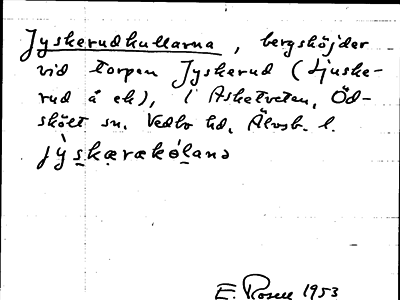 Jyskerudkullarna, bergshöjder
vid torpen Jyskerud (Ljuske-
rud å ek), i Asketveten, Öd-
skölt sn, Vedbo hd, Älvsb. l.
jỳskærækólanə
E. Rosell 1953